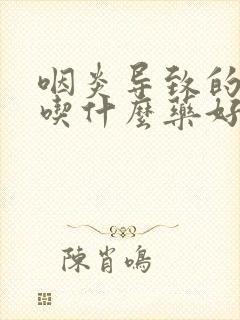 咽炎导致的
喫什麼藥好
陳肖鳴